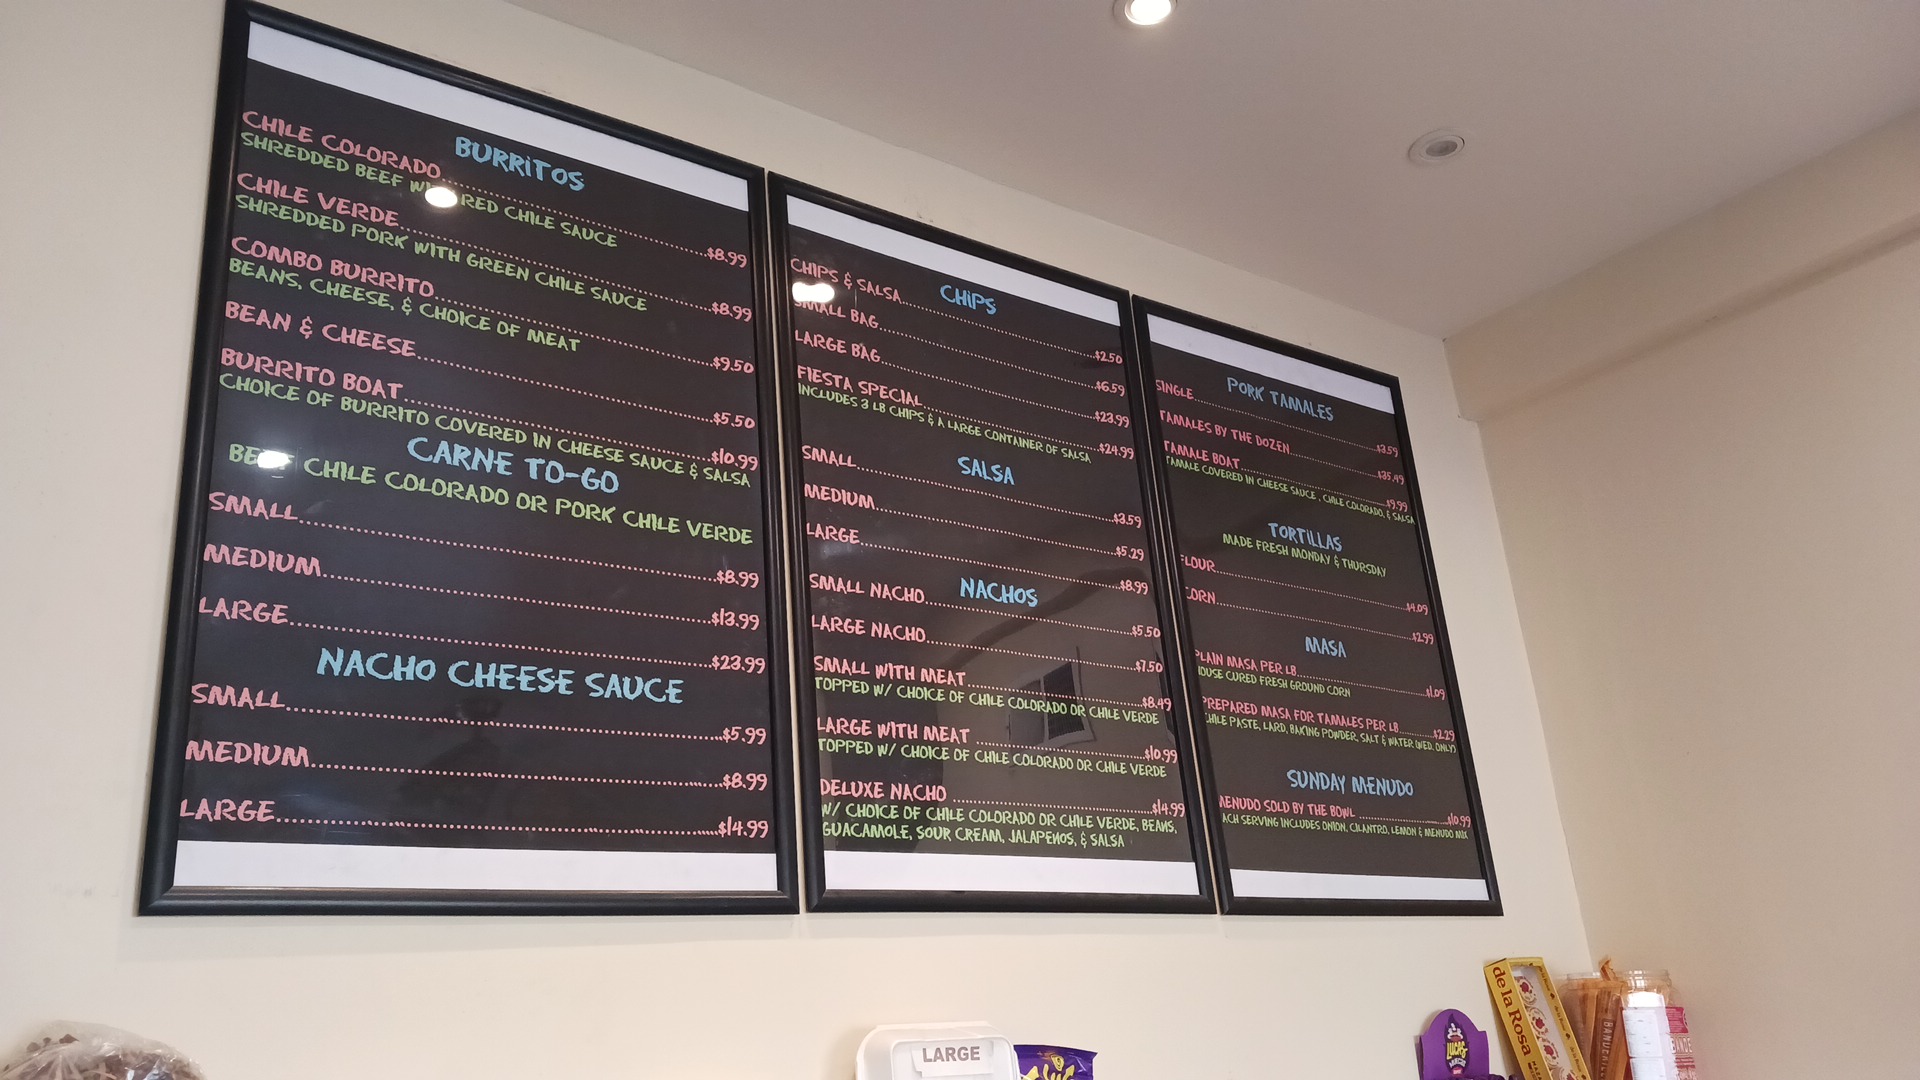 BURRITOS
CHILE COLORADO........$8.99
SHREDDED BEEF RED CHILE SAUCE
CHILE VERDE........$8.99
SHREDDED PORK WITH GREEN CHILE SAUCE
COMBO BURRITO........$9.50
BEANS, CHEESE, & CHOICE OF MEAT
BEAN & CHEESE........$5.50
BURRITO BOAT........$10.99
CHOICE OF BURRITO COVERED IN CHEESE SAUCE & SALSA
CARNE TO-GO
CHILE COLORADO OR PORK CHILE VERDE
SMALL........$8.99
MEDIUM........$13.99
LARGE........$23.99
NACHO CHEESE SAUCE
SMALL........$5.99
MEDIUM........$8.99
LARGE........$14.99
CHIPS
CHIPS & SALSA........$2.50
SMALL BAG........$6.59
LARGE BAG........$23.99
FIESTA SPECIAL........$24.99
INCLUDES 3 LB CHIPS & A LARGE CONTAINER OF SALSA
SALSA
SMALL........$3.59
MEDIUM........$5.29
LARGE........$8.99
NACHOS
SMALL NACHO........$5.50
LARGE NACHO........$7.50
SMALL WITH MEAT........$8.49
TOPPED W/ CHOICE OF CHILE COLORADO OR CHILE VERDE
LARGE WITH MEAT ........$10.99
TOPPED W/ CHOICE OF CHILE COLORADO OR CHILE VERDE
DELUXE NACHO ........$14.99
W/ CHOICE OF CHILE COLORADO OR CHILE VERDE, BEANS,
GUACAMOLE, SOUR CREAM, JALAPENOS, & SALSA
PORK TAMALES
SINGLE........$3.59
TAMALES BY THE DOZEN........$35.49
TAMALE BOAT........$9.99
TAMALE COVERED IN CHEESE SAUCE , CHILE COLORADO, & SALSA
TORTILLAS
MADE FRESH MONDAY & THURSDAY
FLOUR........$4.09
CORN........$2.99
MASA
PLAIN MASA PER LB........$1.09
HOUSE CURED FRESH GROUND CORN
PREPARED MASA FOR TAMALES PER LB........$2.29
CHILE PASTE, LARD, BAKING POWDER, SALT & WATER (WED. ONLY)
SUNDAY MENUDO
MENUDO SOLD BY THE BOWL ........$10.99
EACH SERVING INCLUDES ONION, CILANTRO, LEMON & MENUDO MIX
LARGE
LUCAS
de la Rosa